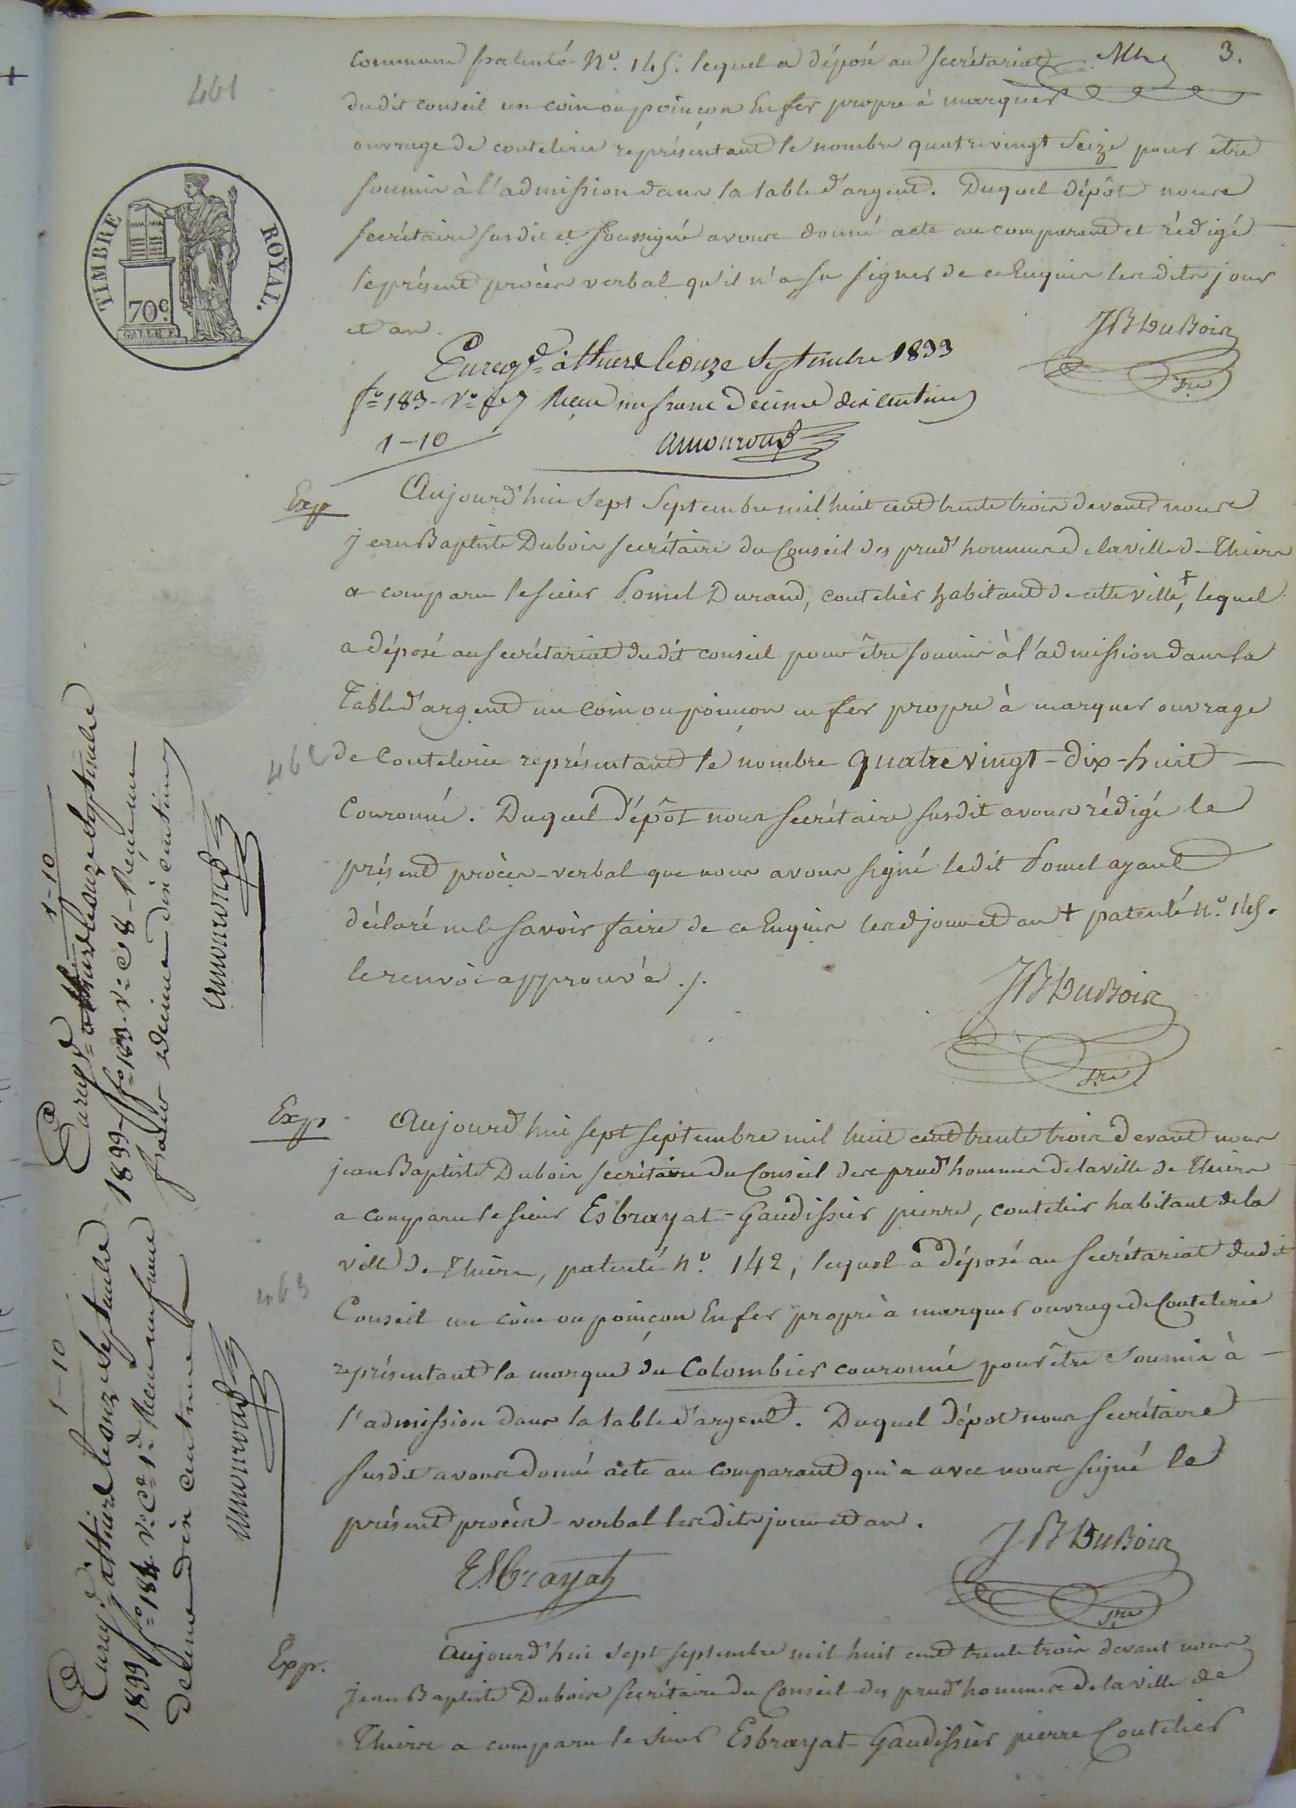 3.
461
commune patenté N.º 145. lequel a déposé au secrétariat
dudit conseil un coin ou poinçon en fer propre à marquer
ouvrage de coutelerie représentant le nombre quatrevingt seize pour être
soumis à l'admission dans la table d'argent. Duquel dépôt nous
secrétaire susdit et soussigné avons donné acte au comparant et rédigé
le présent procès verbal qu'il n'a su signer de ce enquis lesdits jour
et an.
TIMBRE ROYAL.
70c
JB DuBois
Enregé. à Thiers le onze Septembre 1833
fº 183. Vº c 7 Reçu un franc décime dix centimes
1-10
Exp
Aujourd'hui sept Septembre mil huit cent trente trois devant nous
jean Baptiste Dubois secrétaire du Conseil des prud'hommes de la ville de Thiers
a comparu le sieur Pomel Durand, coutelier habitant de cette ville,+ lequel
a déposé au secrétariat dudit conseil pour être soumis à l'admission dans la
Table d'argent un coin ou poinçon en fer propre à marquer ouvrage
462
de Coutelerie représentant le nombre quatrevingt-dix-huit
Couronné. Duquel dépôt nous secrétaire susdit avons rédigé le
présent procès-verbal que nous avons signé ledit Pomel ayant
déclaré ne le savoir faire de ce Enquis lesd jour et an + patenté N.º 145.
le renvoi approuvé ./.
JB DuBois
sre
1-10
Enregé. à Thiers le onze Septembre
1833 fº 183. Vº C 8 - Reçu un
franc décime dix centimes
Exp
Aujourd'hui sept septembre mil huit cent trente trois devant nous
jean Baptiste Dubois secrétaire du Conseil des prud'hommes de la ville de Thiers
a comparu le sieur Esbrayat-Gaudissier pierre, coutelier habitant de la
ville de Thiers, patenté N.º 142, lequel a déposé au secrétariat dudit
463
Conseil un coin ou poinçon En fer propre à marquer ouvrage de Coutelerie
représentant la marque du Colombier couronné pour être soumis à
l'admission dans la table d'argent. Duquel dépôt nous secrétaire
susdit avons donné acte au comparant qui a avec nous signé le
présent procès-verbal lesdits jour et an.
Esbrayat
JB DuBois
sre
1-10
Enregé à Thiers le onze Septembre
1833 fº 184. Vº Cº 1º Reçu un franc
décime dix centimes
Exp.
Aujourd'hui sept septembre mil huit cent trente trois devant nous
jean Baptiste Dubois secrétaire du Conseil des prud'hommes de la ville de
Thiers a comparu le sieur Esbrayat-Gaudissier pierre Coutelier